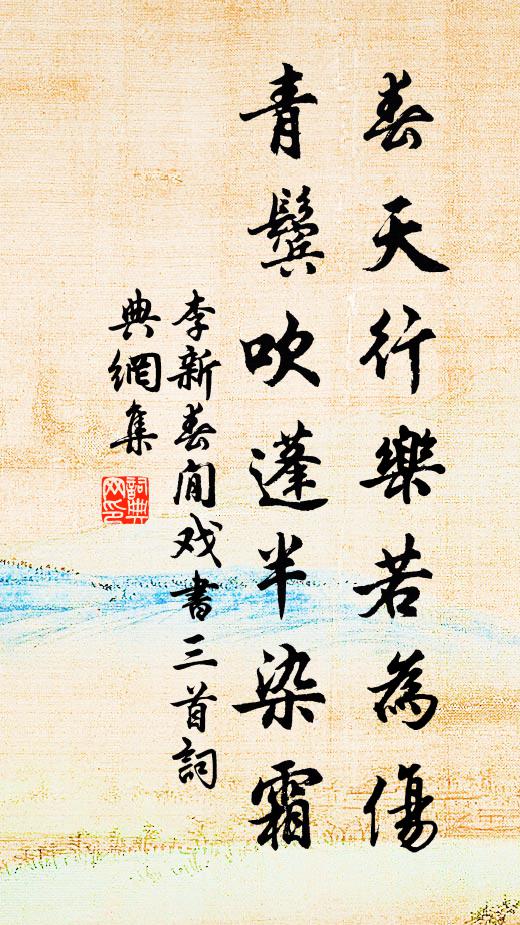 春天行樂若為傷
青鬢吹蓬半染霜
李新春閒戏書三首詞
典網集
詞典网印